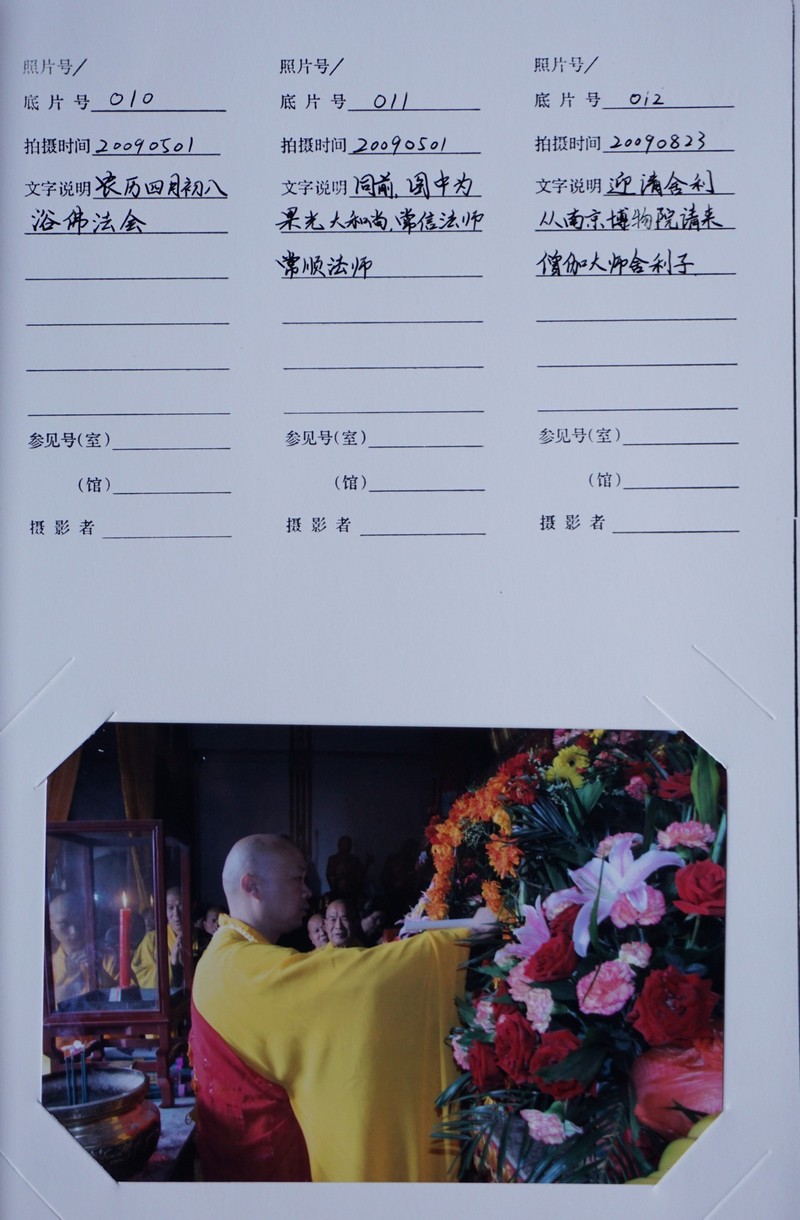 照片号/
底片号 010
拍摄时间 20090501
文字说明 农历四月初八
浴佛法会
参见号(室)
(馆)
摄影者
照片号/
底片号 011
拍摄时间 20090501
文字说明 同前,图中为
果光大和尚,常信法师
常顺法师
参见号(室)
(馆)
摄影者
照片号/
底片号 012
拍摄时间 20090823
文字说明 迎请舍利
从南京博物院请来
僧伽大师舍利子
参见号(室)
(馆)
摄影者